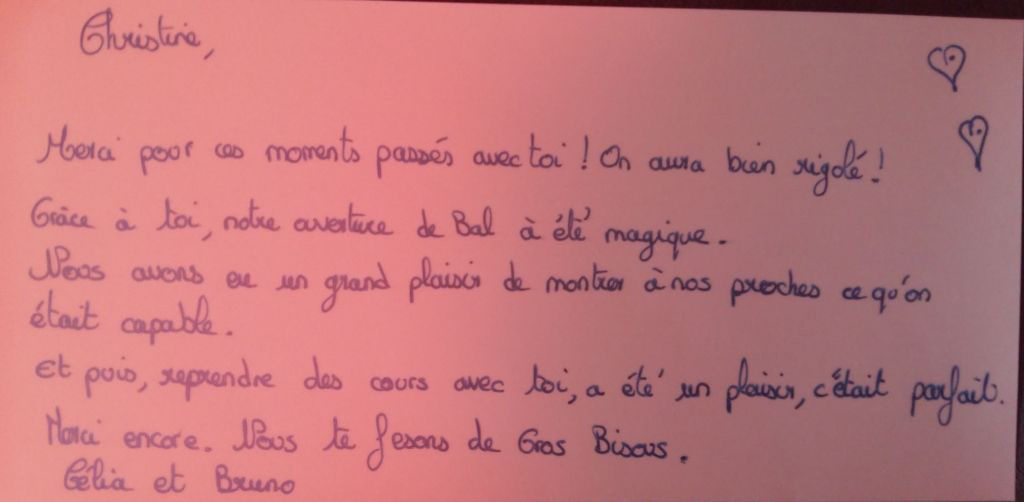 Christine,
Merci pour ces moments passés avec toi ! On aura bien rigolé !
Grâce à toi, notre ouverture de Bal à été magique.
Nous avons eu un grand plaisir de montrer à nos proches ce qu'on
était capable.
Et puis, reprendre des cours avec toi, a été un plaisir, c'était parfait.
Merci encore. Nous te fesons de Gros Bisous.
Célia et Bruno